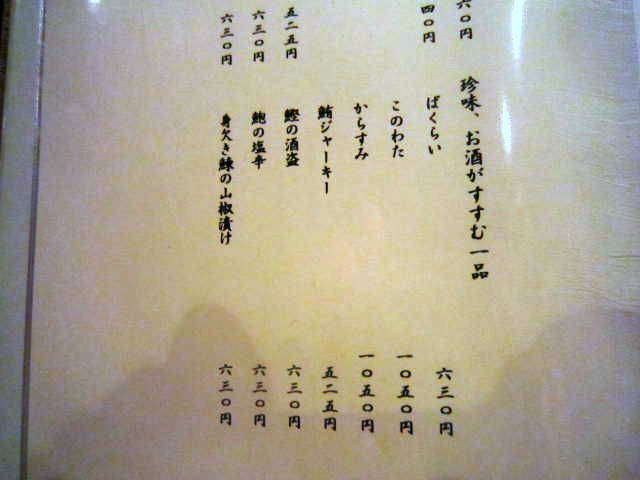 六〇円
四〇円
五二五円
六三〇円
六三〇円
珍味、お酒がすすむ一品
ばくらい 六三〇円
このわた 一〇五〇円
からすみ 一〇五〇円
鮪ジャーキー 五二五円
鰹の酒盗 六三〇円
鮑の塩辛 六三〇円
身欠き鰊の山椒漬け 六三〇円